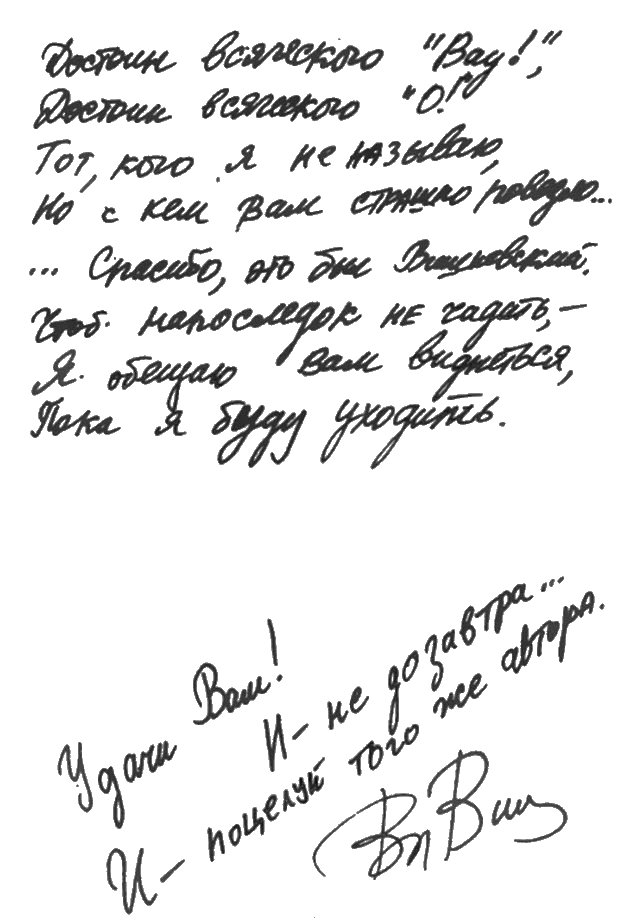 Достоин всяческого "Вау!",
Достоин всяческого "О!"
Тот, кого я не называю,
Но с кем вам страшно повезло...
... Спасибо, это был Вишневский.
Чтоб напоследок не гадать, —
Я обещаю вам виднеться,
Пока я буду уходить.
Удачи Вам!
И - не до завтра...
И - поцелуй того же автора.